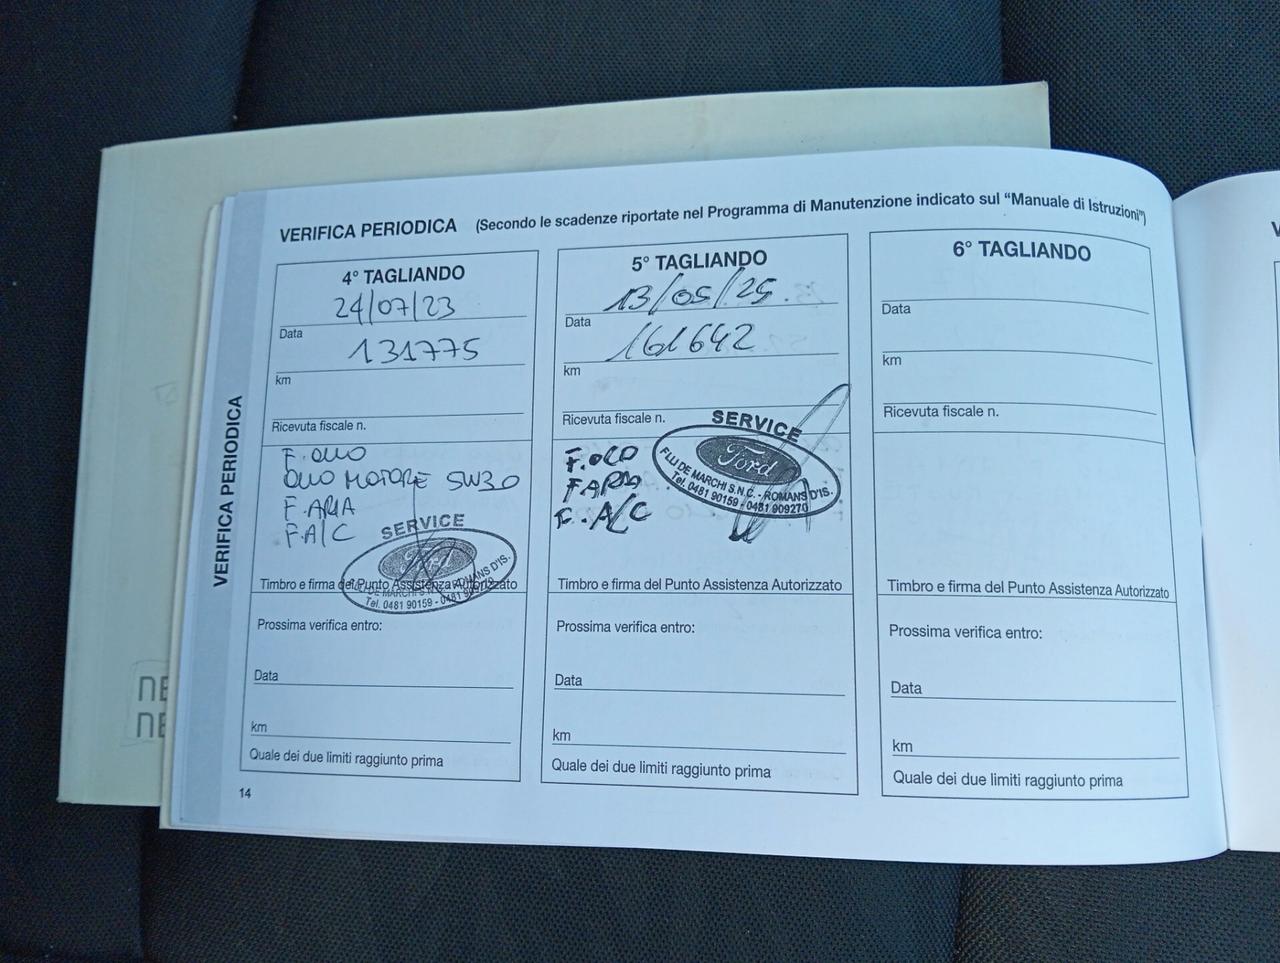 VERIFICA PERIODICA (Secondo le scadenze riportate nel Programma di Manutenzione indicato sul "Manuale di Istruzioni")
VERIFICA PERIODICA
4° TAGLIANDO
24/07/23
Data
131775
km
Ricevuta fiscale n.
F. OLIO
OLIO MOTORE 5W30
F. ARIA
F. A/C
SERVICE
Ford
DE MARCHI S.N.C. - ROMANS D'IS.
Tel. 0481 90159 - 0481 909270
Timbro e firma del Punto Assistenza Autorizzato
Prossima verifica entro:
Data
km
Quale dei due limiti raggiunto prima
5° TAGLIANDO
13/05/25
Data
161642
km
Ricevuta fiscale n.
F. OLIO
F ARIA
F. A/C
SERVICE
Ford
F.LLI DE MARCHI S.N.C. - ROMANS D'IS.
Tel. 0481 90159 - 0481 909270
Timbro e firma del Punto Assistenza Autorizzato
Prossima verifica entro:
Data
km
Quale dei due limiti raggiunto prima
6° TAGLIANDO
Data
km
Ricevuta fiscale n.
Timbro e firma del Punto Assistenza Autorizzato
Prossima verifica entro:
Data
km
Quale dei due limiti raggiunto prima
14
NE
NE